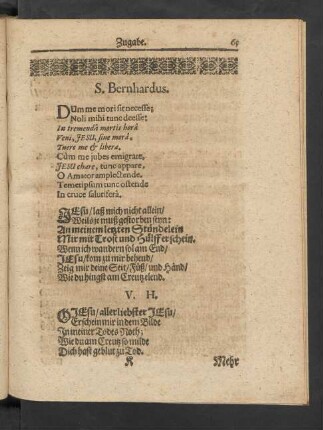 Zugabe.
S. Bernhardus.
Dum me mori sit necesse;
Noli mihi tunc deesse;
In tremendâ mortis horâ
Veni, JESU, sine morâ,
Tuere me & libera,
Cùm me jubes emigrare,
JESU chare, tunc appare,
O Amator amplectende.
Temetipsum tunc ostende
In cruce salutiferâ.
JEsu/ laß mich nicht allein/
Weil es je muß gestorben seyn:
An meinen letzten Stündelein
Mir mit Trost und Hülff erschein.
Wenn ich wandern sol am End/
JEsu/ kom zu mir behend/
Zeig mir deine Seit/ Füß/ und Händ/
Wie du hingst am Creutz elend.
V. H.
O JEsu/ allerliebster JEsu/
Erschein mir in dem Bilde
In meiner Todes Noth;
Wie du am Creutz so milde
Dich hast geblut zu Tod.
K Mehr